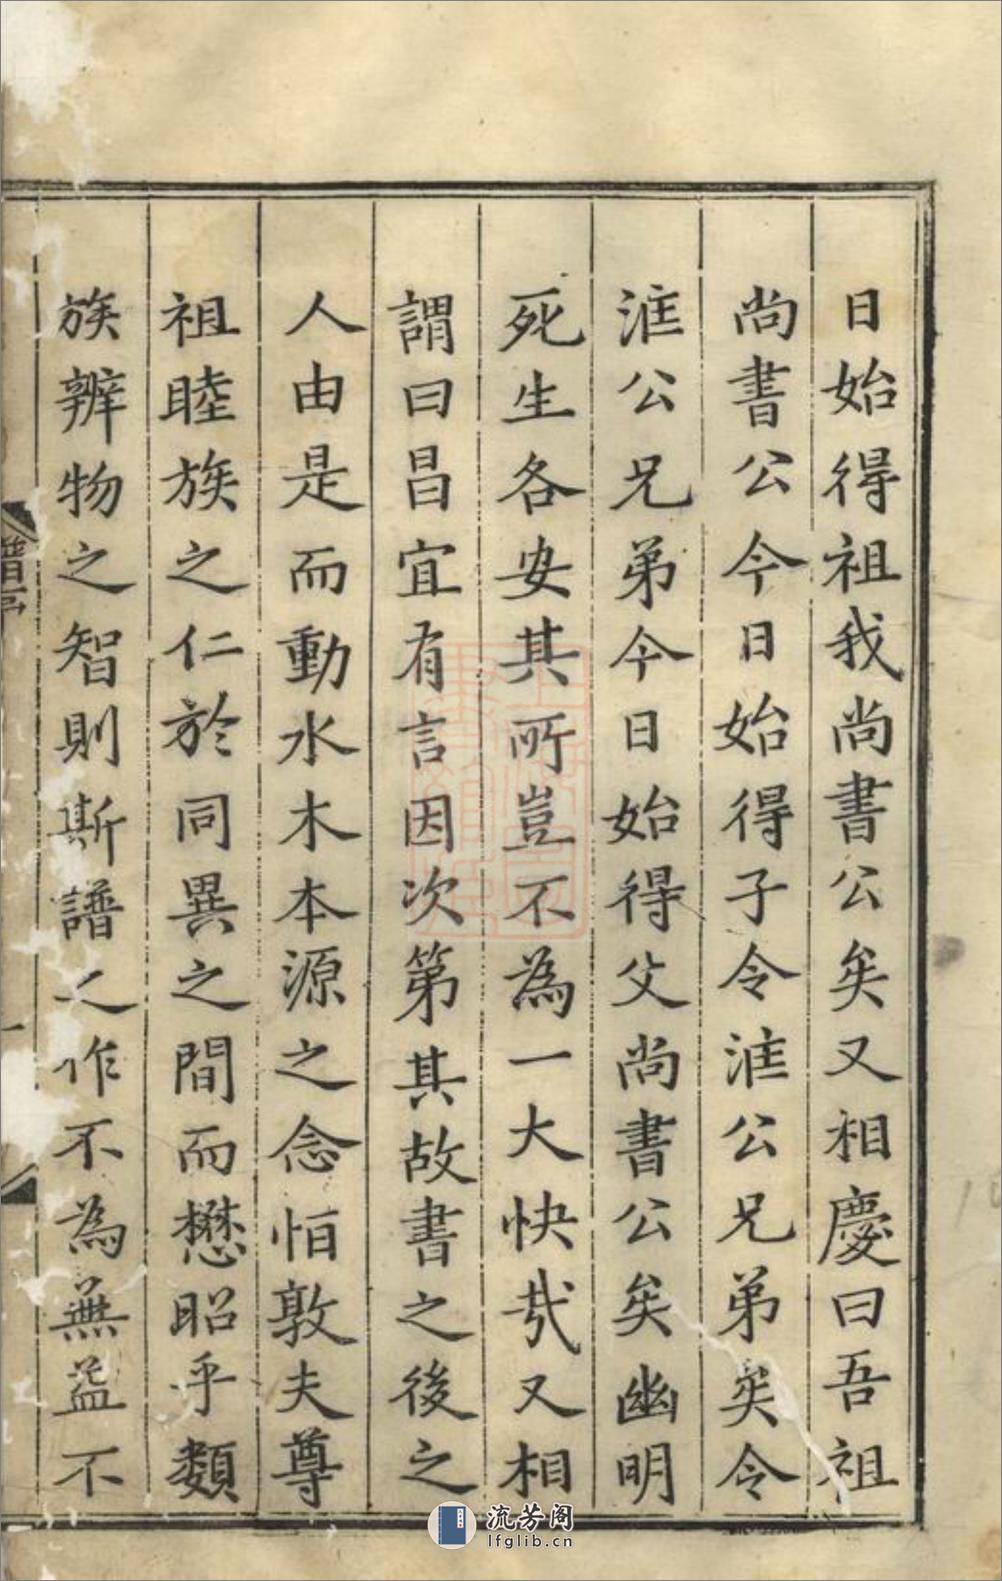 日始得祖我尚書公矣又相慶曰吾祖
尚書公今日始得子令淮公兄弟矣令
淮公兄弟今日始得父尚書公矣幽明
死生各安其所豈不為一大快哉又相
謂曰昌宜有言因次第其故書之後之
人由是而動水木本源之念怕敦夫尊
祖睦族之仁於同異之間而懋昭乎類
族辨物之智則斯譜之作不為無益不
譜序
一
流芳阁
lfglib.cn